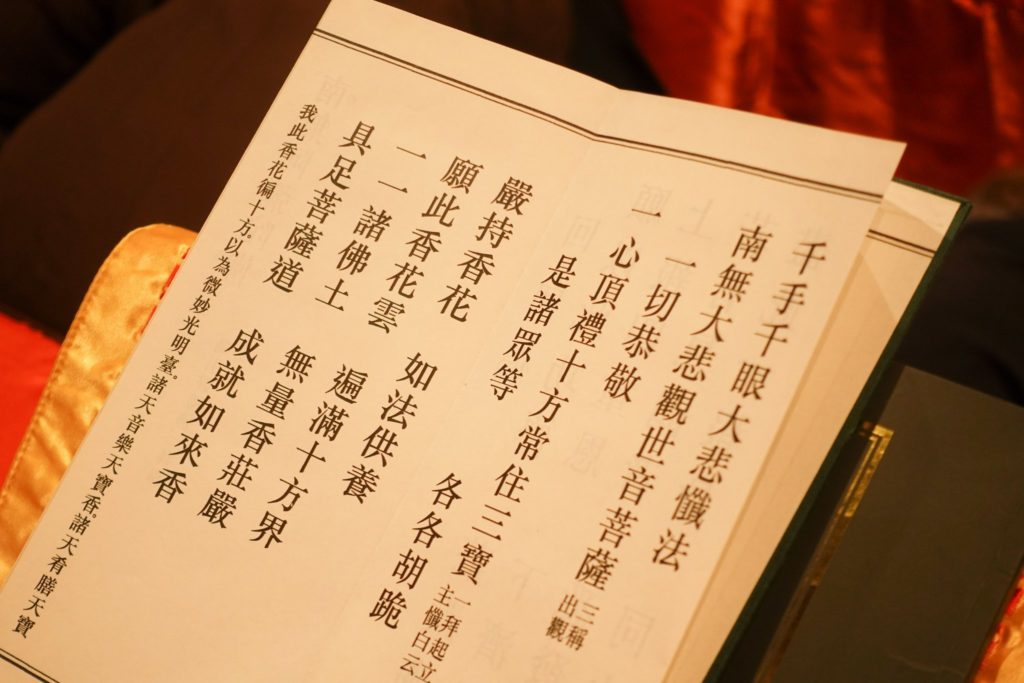 千手千眼大悲懺法
南無大悲觀世音菩薩 三稱出觀
一切恭敬
一心頂禮十方常住三寶 一拜起立主懺白云
是諸眾等 各各胡跪
嚴持香花 如法供養
願此香花雲 遍滿十方界
一一諸佛土 無量香莊嚴
具足菩薩道 成就如來香
我此香花徧十方。以為微妙光明臺。諸天音樂天寶香。諸天肴膳天寶